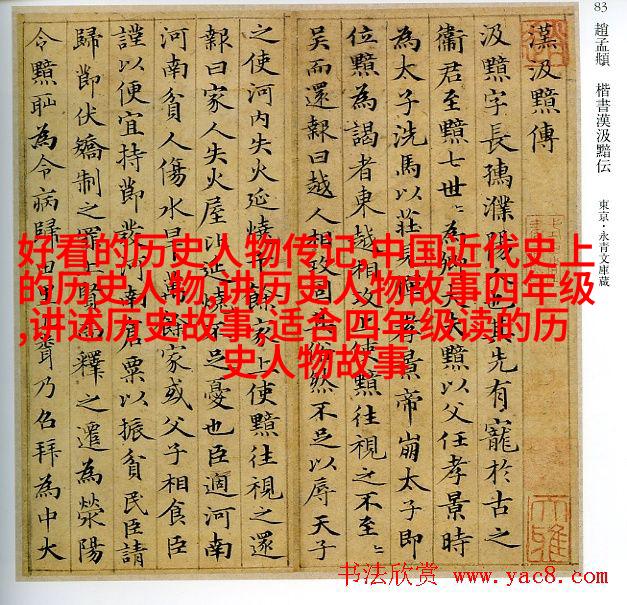 83 趙孟頫 楷書漢汲黯伝 東京·永青文庫蔵
漢汲黯傳
汲黯字長孺濮陽人也其先有寵於古之
衞君至黯七世〻為卿大夫黯以父任孝景時
為太子洗馬以莊見憚孝景帝崩太子即
位黯為謁者東越相攻上使黯往視之不至〻
吳而還報曰越人相攻固其俗然不足以辱天子
之使河內失火延燒千餘家上使黯往視之還
報曰家人失火屋比延燒不足憂也臣適河南
河南貧人傷水旱萬餘家或父子相食臣
謹以便宜持節發河南倉粟以振貧民臣請
歸節伏矯制之罪上賢而釋之遷為滎陽
令黯恥為令病歸田里乃召拜為中大
好看的历史人物传记,中国近代史上
的历史人物,讲历史人物故事四年级
,讲述历史故事,适合四年级读的历
史人物故事
书法欣赏 www.yac8.com